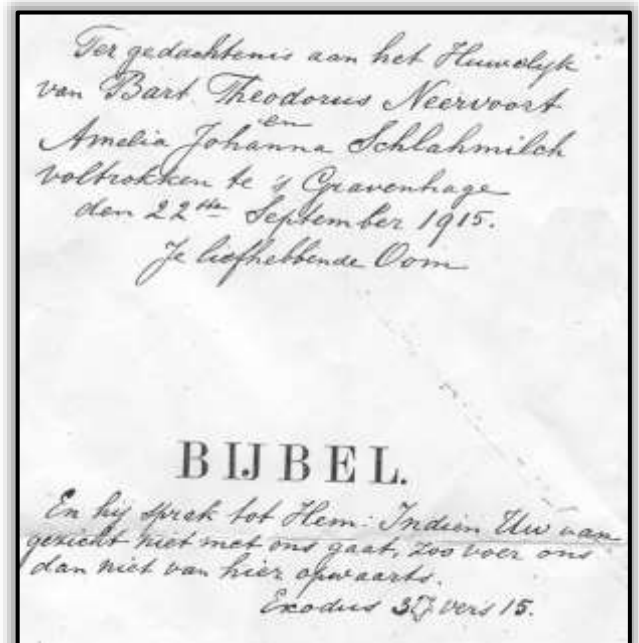 Ter gedachtenis aan het Huwelijk
van Bart Theodorus Neervoort
en
Amelia Johanna Schlahmilch
voltrokken te 's Gravenhage
den 22ste September 1915.
Je liefhebbende Oom
BIJBEL.
En hij sprak tot Hem: Indien Uw aan
gezicht niet met ons gaat, zoo voer ons
dan niet van hier opwaarts.
Exodus vers 15.